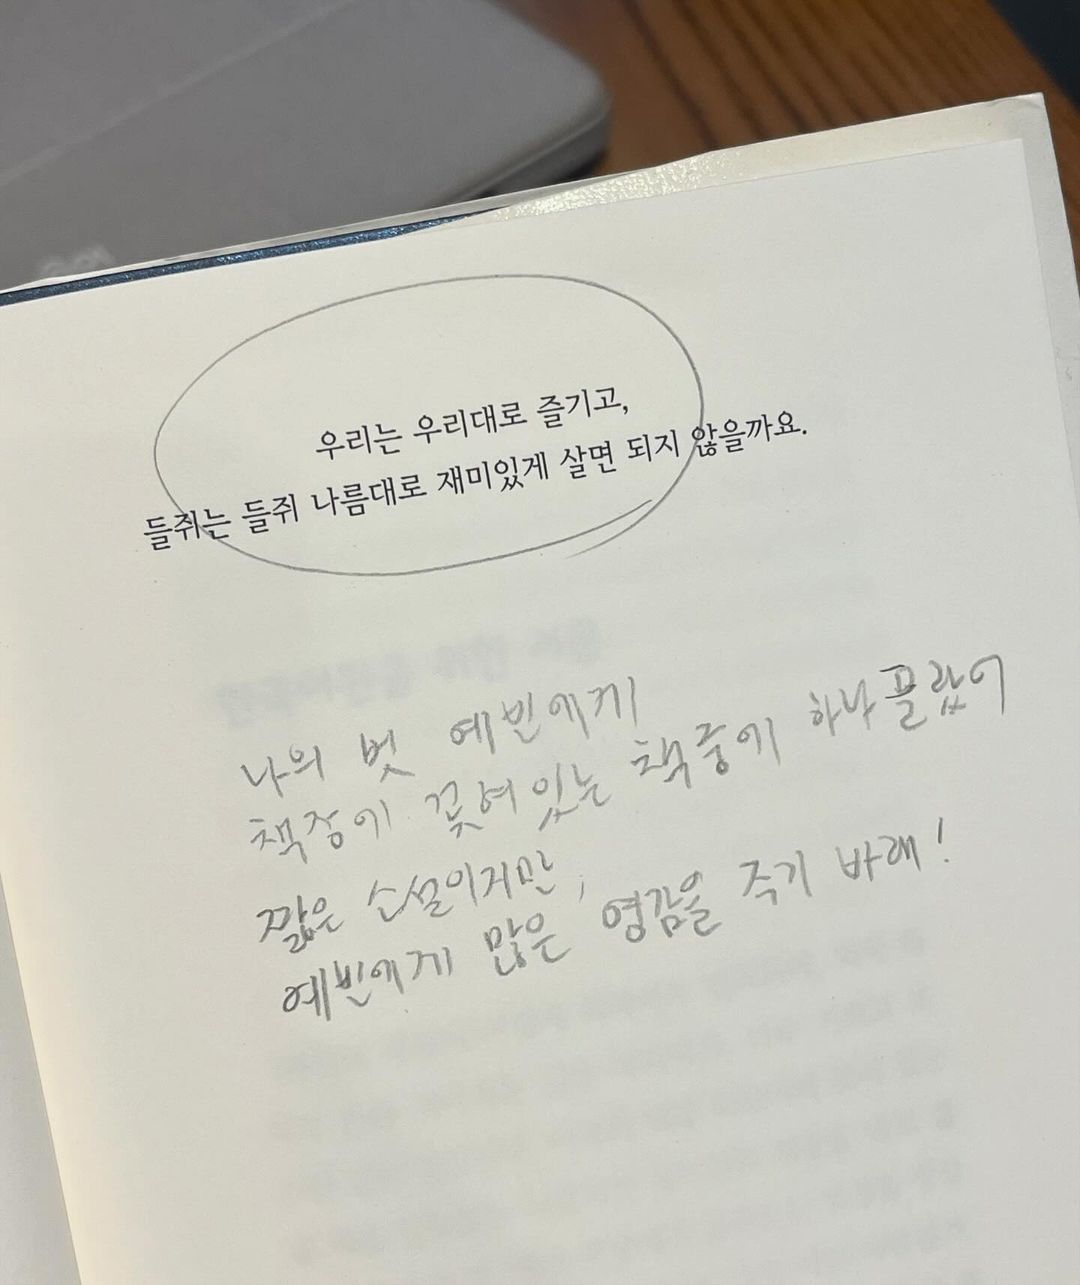 우리는 우리대로 즐기고,
들쥐는 들쥐 나름대로 재미있게 살면 되지 않을까요.
나의 벗 예빈에게
책장에 꽂혀있는 책중에 하나 골랐어
짧은 소설이지만,
예빈에게 많은 영감을 주기 바래!